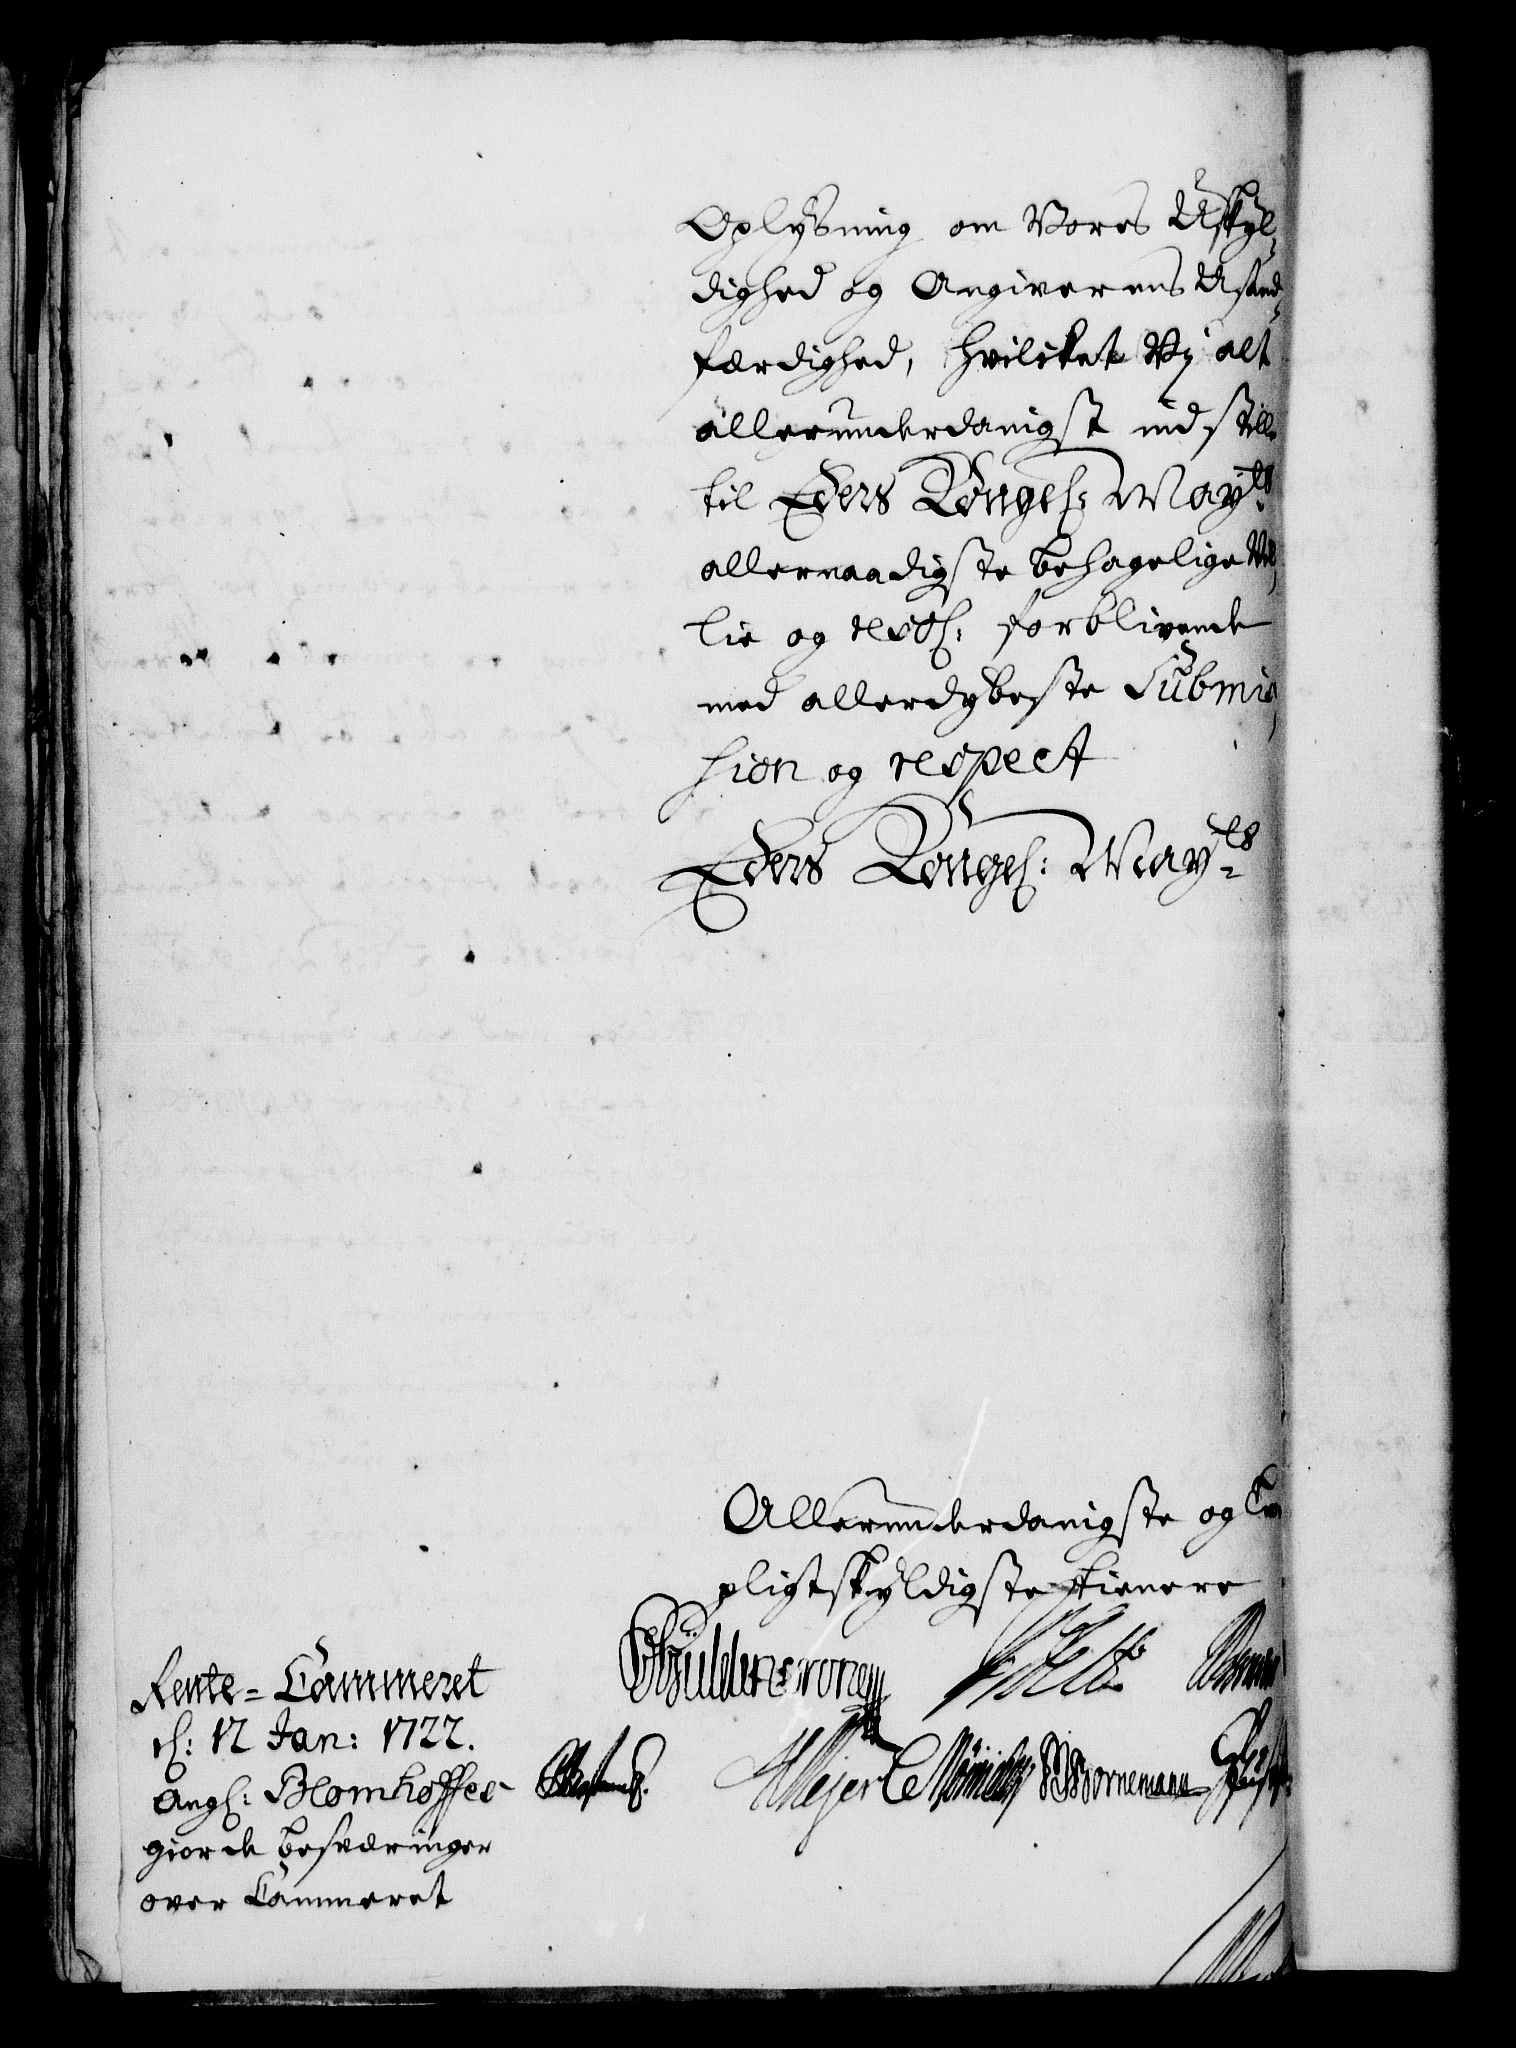 Oplysning om Vores Uskyl-
dighed og Angiverens Ustad-
færdighed, hvilcket Vj alt
allerunderdanigst indstille
til Eders Kongel: Mayts
allernaadigste behagelige Vil
lie og resol: forblivende
med allerdybeste Submis
sion og respect
Eders Kongel: Mayts
Allerunderdanigste og
pligtskyldigste tienere
Güldencrone
Rente-Cammeret
d: 12 Jan: 1722.
Angl: Blomhoffes
giorde besværinger
over Cammeret
Meijer
Bornemann